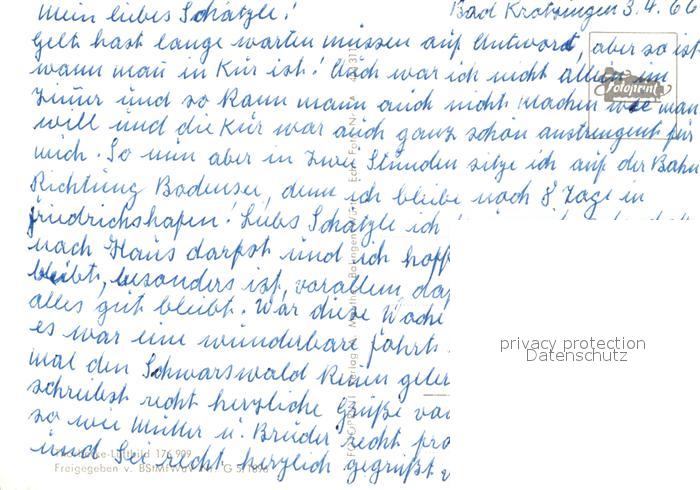 Mein liebes Schätzle!
Bad Krotzingen 3.4.66
Gelt hast lange warten müssen auf Antword, aber so ist
wann man in Kur ist! Auch war ich nicht allein im
Zimmer und so kann mann auch nicht machen wie man
will und die Kur war auch ganz schön anstrengent für
mich. So nun aber in zwei Stunden sitze ich auf der Bahn
Richtung Bodensee, denn ich bleibe noch 8 Tage in
Friedrichshafen! Liebs Schätzle ich
nach Haus darfst und ich hoff
bleibt, besonders ist, vorallem daß
alles gut bleibt. War diese Woche
es war eine wunderbare fahrt.
mal den Schwarswald kenen geler
schreibst recht herzliche Grüße
so wie Mutter u. Bruder recht
und Sei recht herzlich gegrüßt
Fotoprint
privacy protection
Datenschutz
Freigegeben v.